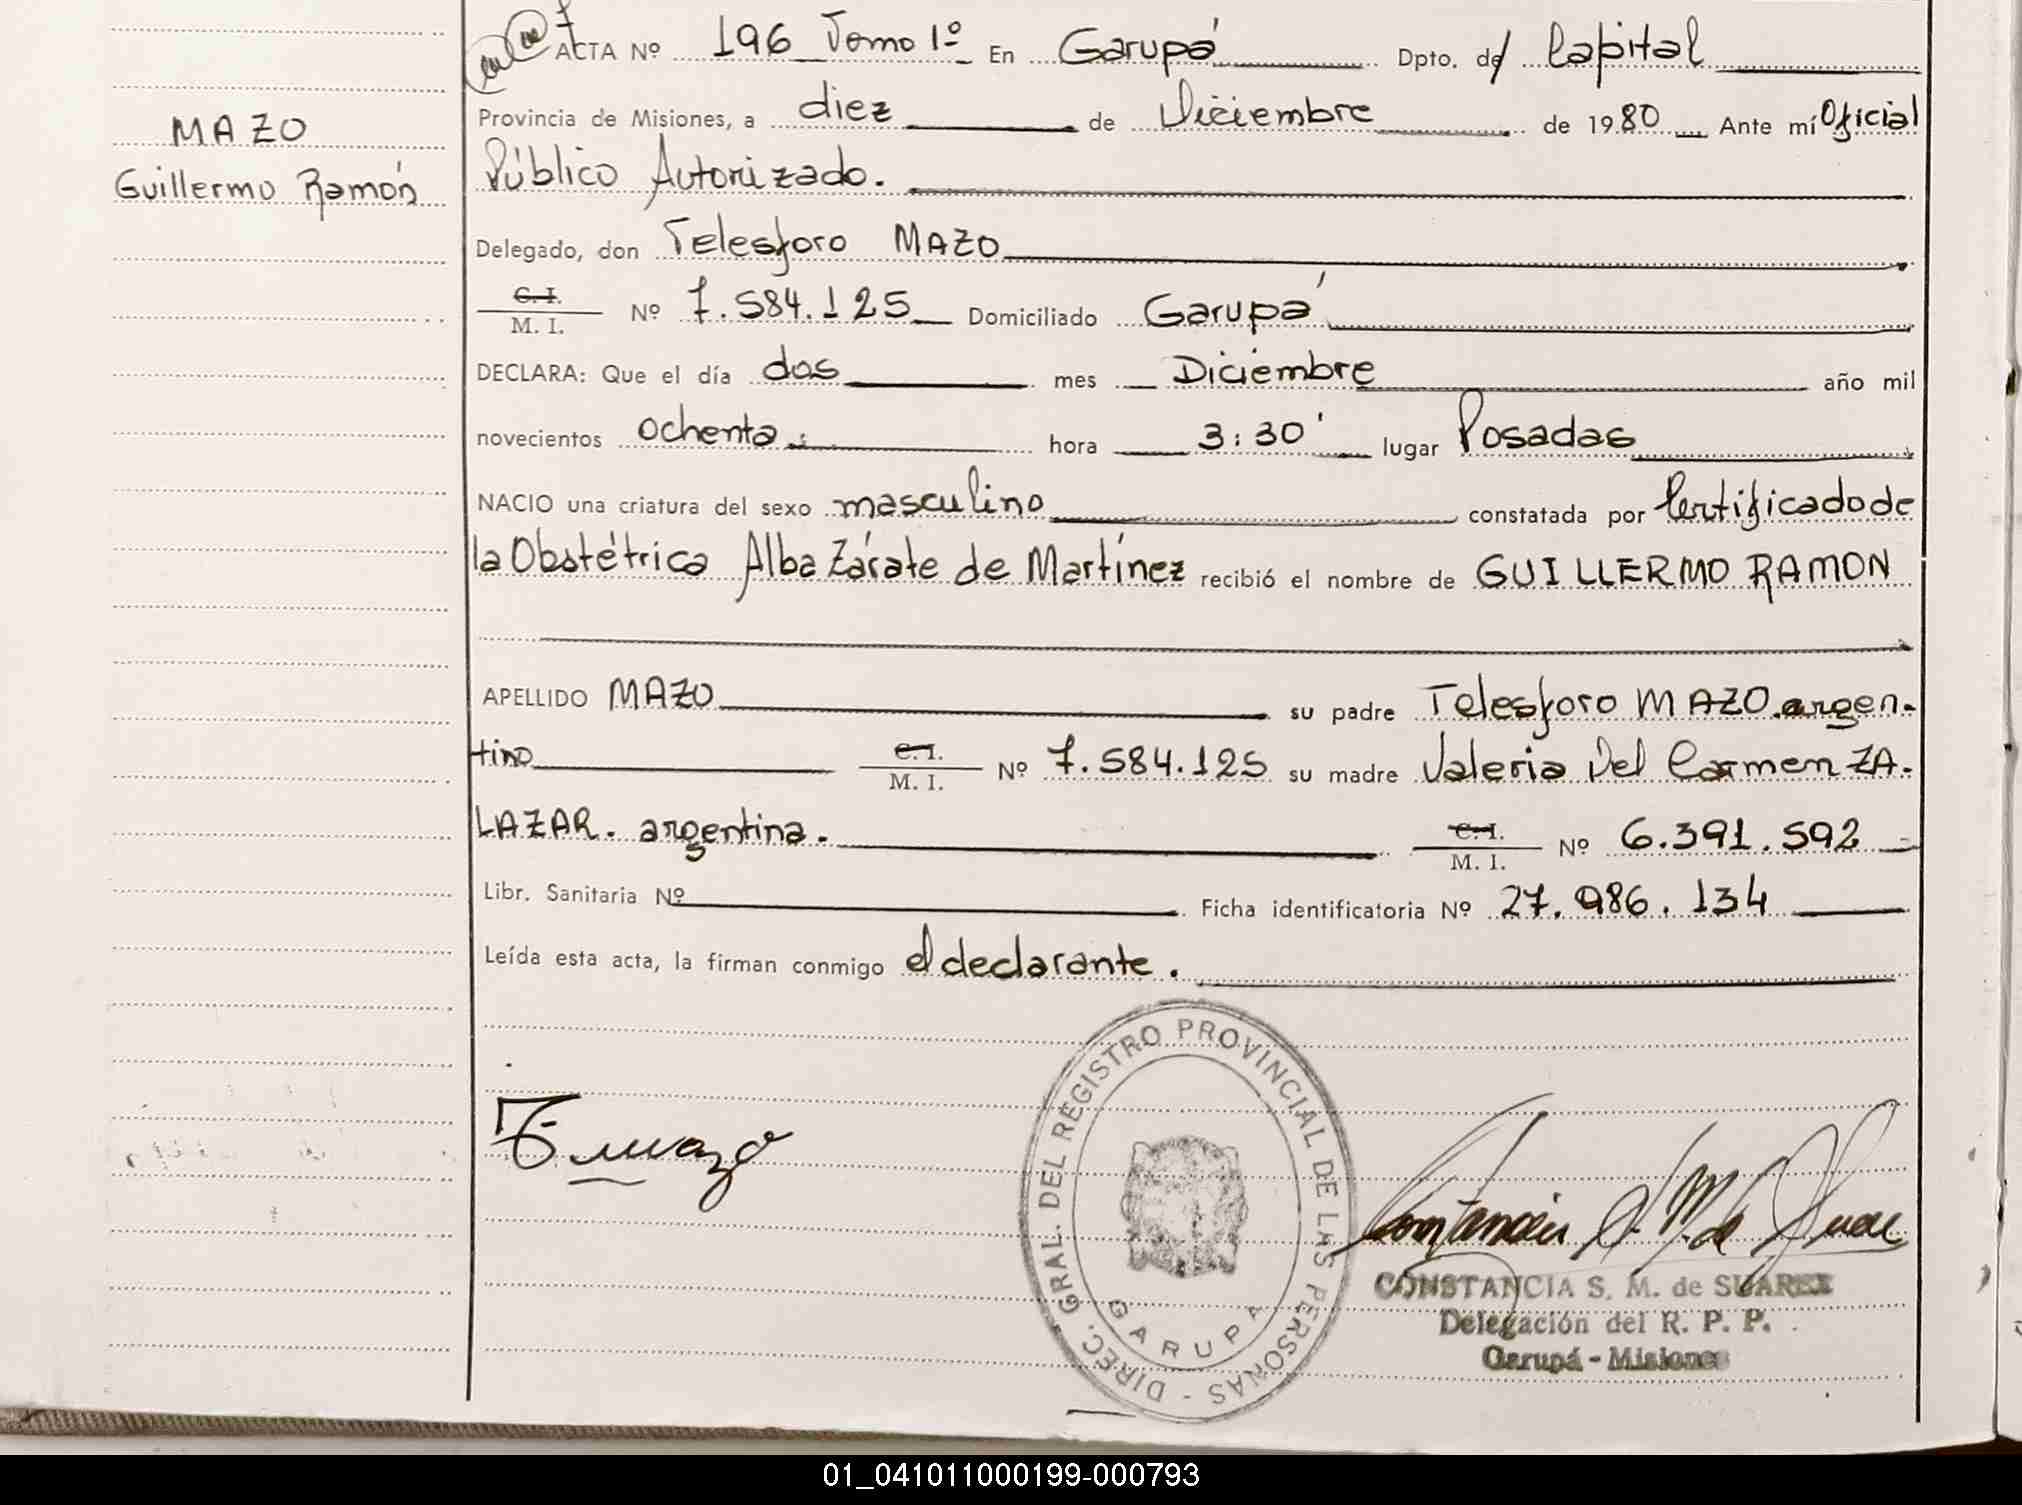 ACTA Nº 196 Tomo 1º En Garupá Dpto. de Capital
Provincia de Misiones, a diez de Diciembre de 1980 Ante mí Oficial
MAZO
Público Autorizado.
Guillermo Ramón
Delegado, don Telesforo MAZO
C. I.
M. I. Nº 7.584.125 Domiciliado Garupá
DECLARA: Que el día dos mes Diciembre año mil
novecientos ochenta. hora 3:30' lugar Posadas
NACIO una criatura del sexo masculino constatada por Certificado de
la Obstétrica Alba Zárate de Martínez recibió el nombre de GUILLERMO RAMON
APELLIDO MAZO su padre Telesforo MAZO. argen-
tino C. I.
M. I. Nº 7.584.125 su madre Valeria Del Carmen ZA-
LAZAR. argentina. C. I.
M. I. Nº 6.391.592
Libr. Sanitaria Nº Ficha identificatoria Nº 27.986.134
Leída esta acta, la firman conmigo el declarante.
DIREC. GRAL. DEL REGISTRO PROVINCIAL DE LAS PERSONAS -
GARUPA
T. Mazo
Constancia S. M. de Suarez
CONSTANCIA S. M. de SUAREZ
Delegación del R. P. P.
Garupá - Misiones
01_041011000199-000793